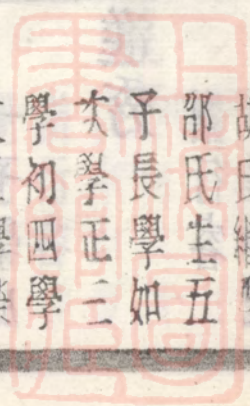 胡氏繼
邵氏生五
子長學如
次學正三
學初四學